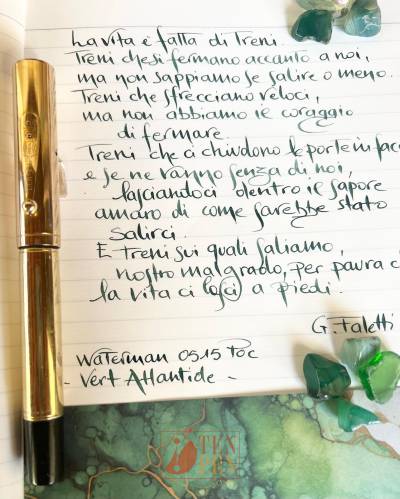 La vita è fatta di Treni.
Treni che si fermano accanto a noi,
ma non sappiamo se salire o meno.
Treni che sfrecciano veloci,
ma non abbiamo il coraggio
di fermare.
Treni che ci chiudono le porte in fac
e se ne vanno senza di noi,
lasciandoci dentro il sapore
amaro di come sarebbe stato
salirci.
E treni sui quali saliamo,
nostro malgrado, per paura c
la vita ci lasci a piedi.
G. Faletti
Waterman 0515 POC
- Vert Atlantide -
TEN
PEN